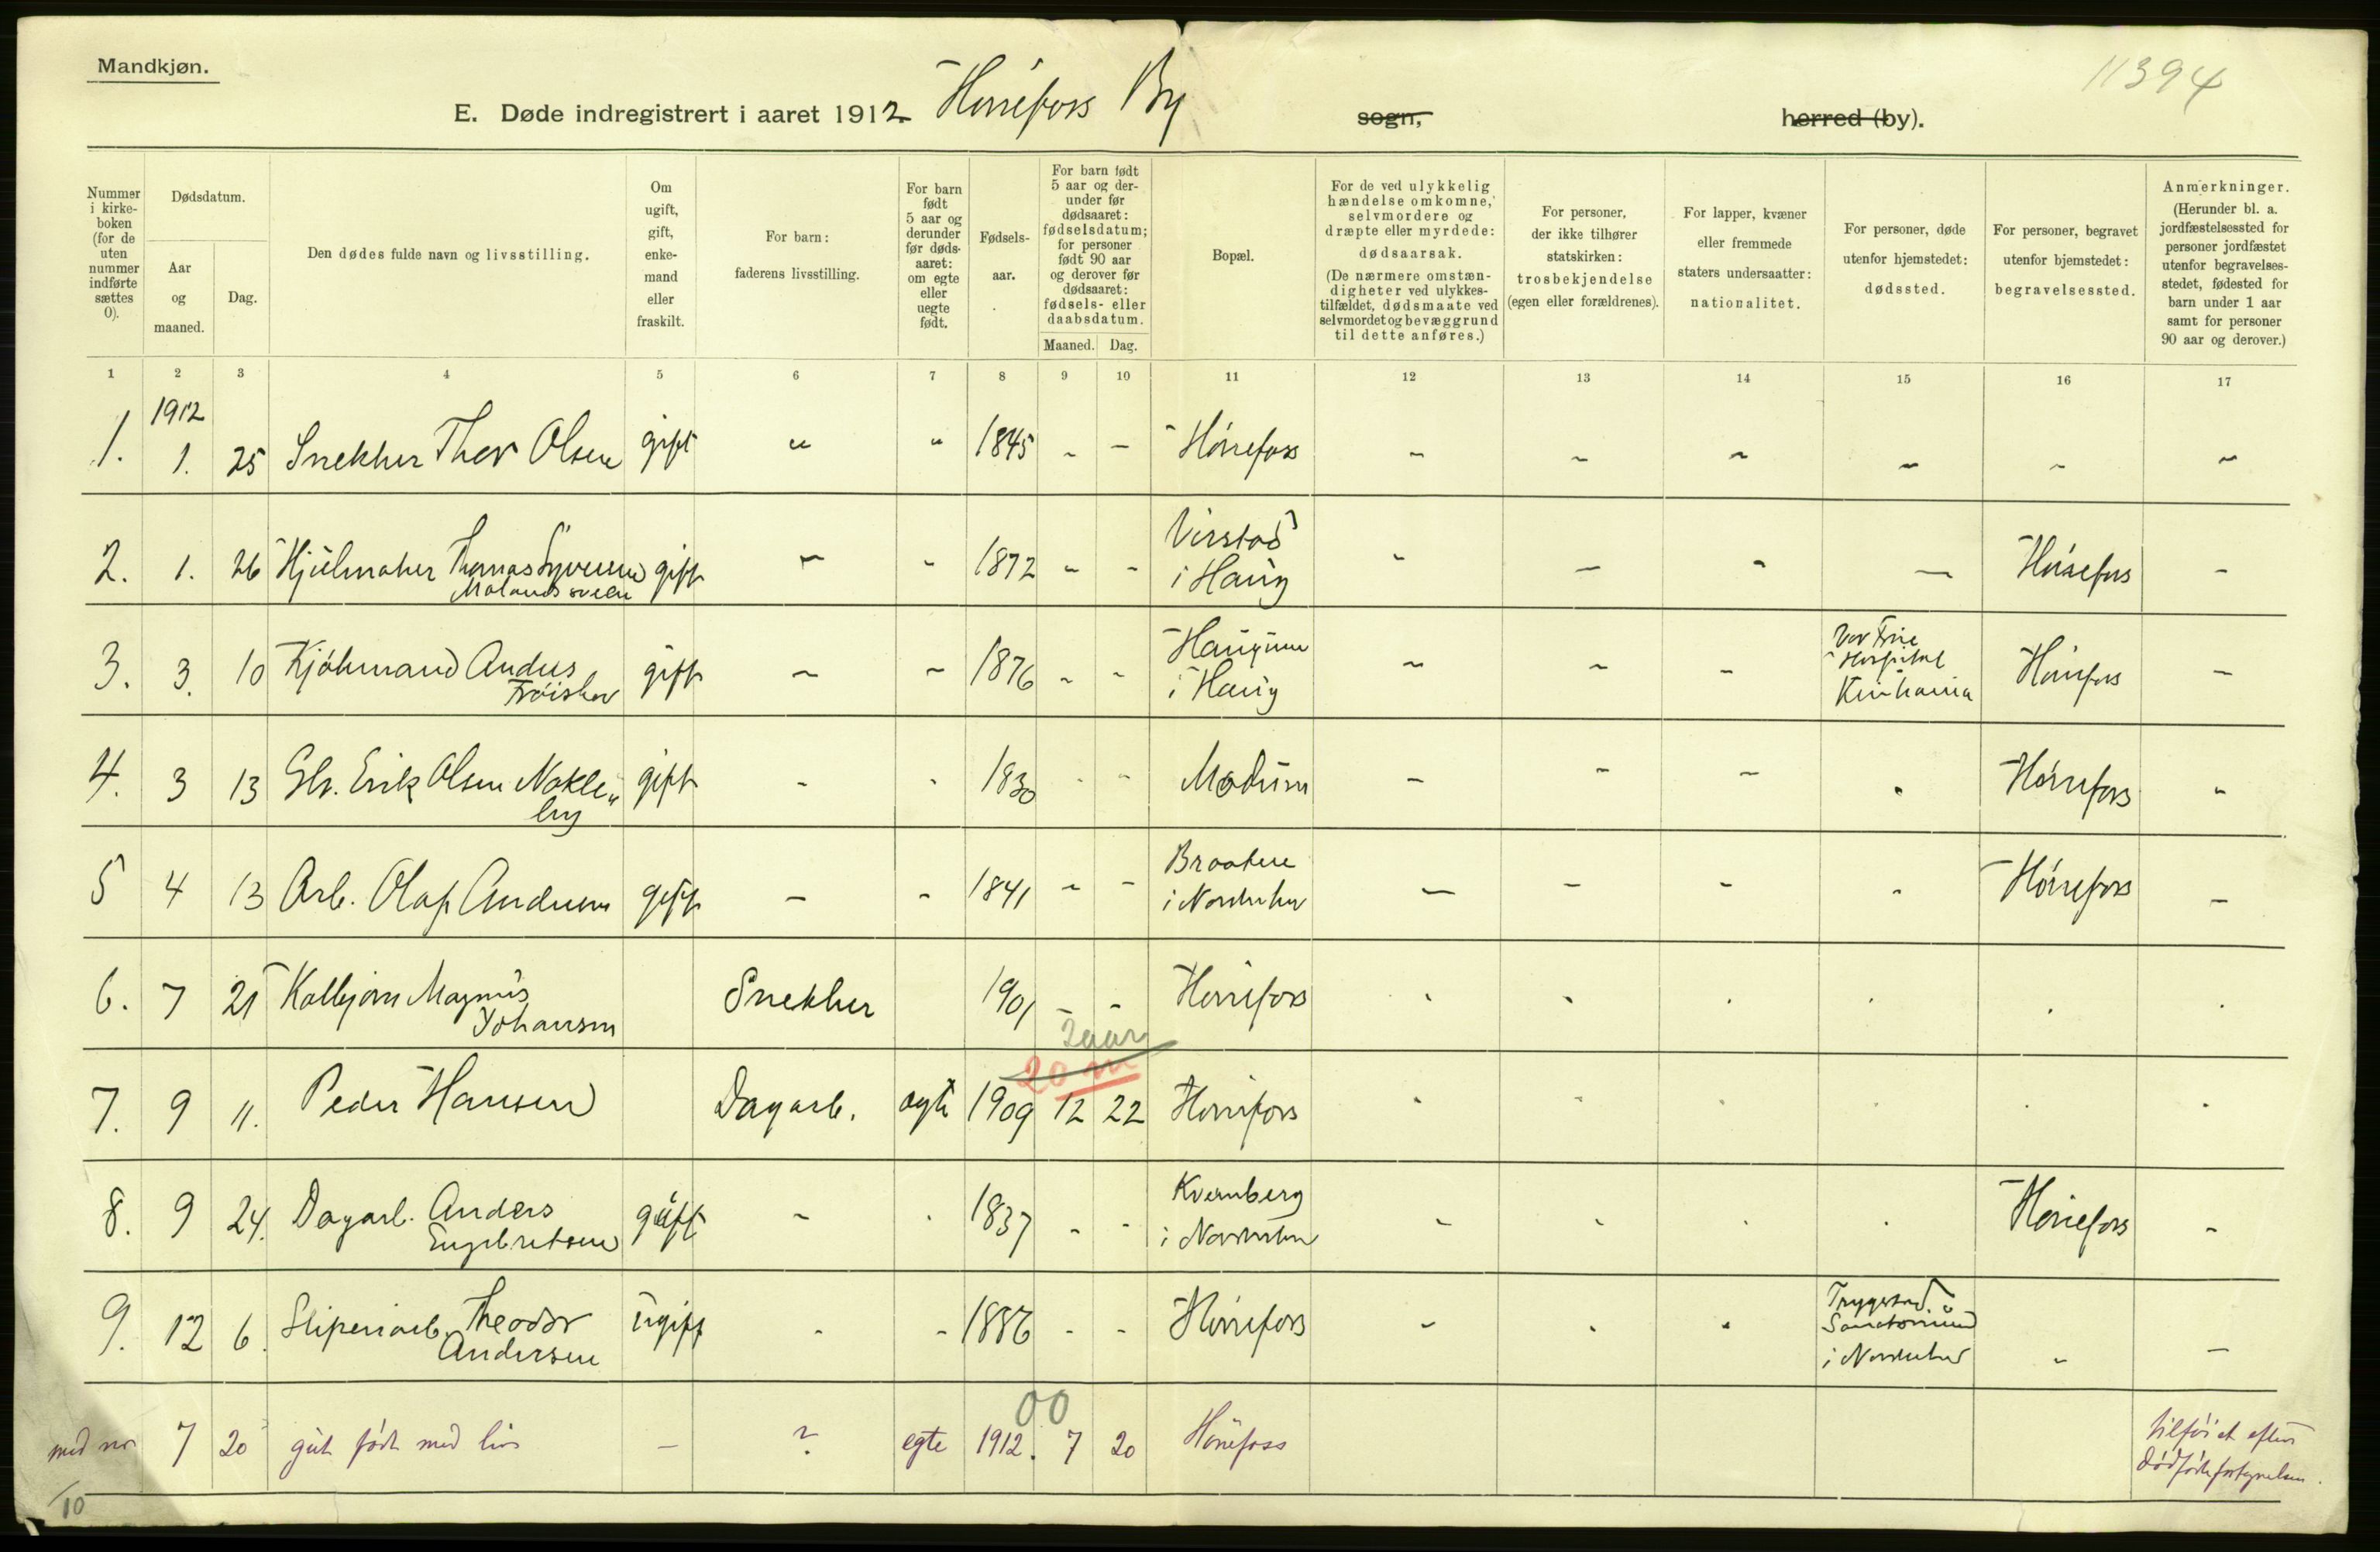 Mandkjøn.
11394
E. Døde indregistrert i aaret 1912. Hønefoss By sogn, herred (by).
Nummer i kirke- boken (for de uten nummer indførte sættes 0).
Dødsdatum.
Aar og maaned.
Dag.
Den dødes fulde navn og livsstilling.
Om ugift, gift, enke- mand eller fraskilt.
For barn: faderens livsstilling.
For barn født 5 aar og derunder før døds- aaret: om egte eller uegte født.
Fødsels- aar.
For barn født 5 aar og der- under før dødsaaret: fødselsdatum; for personer født 90 aar og derover før dødsaaret: fødsels- eller daabsdatum.
Maaned. Dag.
Bopæl.
For de ved ulykkelig hændelse omkomne, selvmordere og dræpte eller myrdede: dødsaarsak. (De nærmere omstæn- digheter ved ulykkes- tilfældet, dødsmaate ved selvmordet og bevæggrund til dette anføres.)
For personer, der ikke tilhører statskirken: trosbekjendelse (egen eller forældrenes).
For lapper, kvæner eller fremmede staters undersaatter: nationalitet.
For personer, døde utenfor hjemstedet: dødssted.
For personer, begravet utenfor hjemstedet: begravelsessted.
Anmerkninger. (Herunder bl. a. jordfæstelsessted for personer jordfæstet utenfor begravelses- stedet, fødested for barn under 1 aar samt for personer 90 aar og derover.)
1 2 3 4 5 6 7 8 9 10 11 12 13 14 15 16 17
1912
1. 1. 25 Snekker Thor Olsen gift " " 1845 - - Hønefoss - - - - - -
2. 1. 26 Hjulmaker Thomas Syversen gift - - 1872 - - Virstad i Haug - - - - Hønefoss -
3. 3. 10 Kjøbmand Anders Frøishov gift - - 1876 - - i Haug - - - Vor Frue Hospital Kristiania Hønefoss -
4. 3 13 Erik Olsen Nakle- by gift - - 1830 - - Modum - - - - Hønefoss -
5 4 13 Arb. Olaf Andersen gift - - 1841 - - Braaten i Norderhov - - - - Hønefoss -
6. 7 21 Kolbjørn Magnus Johansen Snekker 1901 - - Hønefoss
2 aar
20 m
7. 9 11. Peder Hansen Dagarb. egte 1909 12 22 Hønefoss
8. 9 24. Dagarb. Anders Engebretsen gift - - 1837 - - Kvernberg i Norderhov - - - - Hønefoss -
9. 12 6. Sliperiarb. Theodor Andersen ugift - - 1886 - - Hønefoss - - - Tryggstad Sanatorium i Norderhov - -
00
med nr 7 20 gut født med liv - ? egte 1912. 7 20 Hønefoss tilføiet efter
10